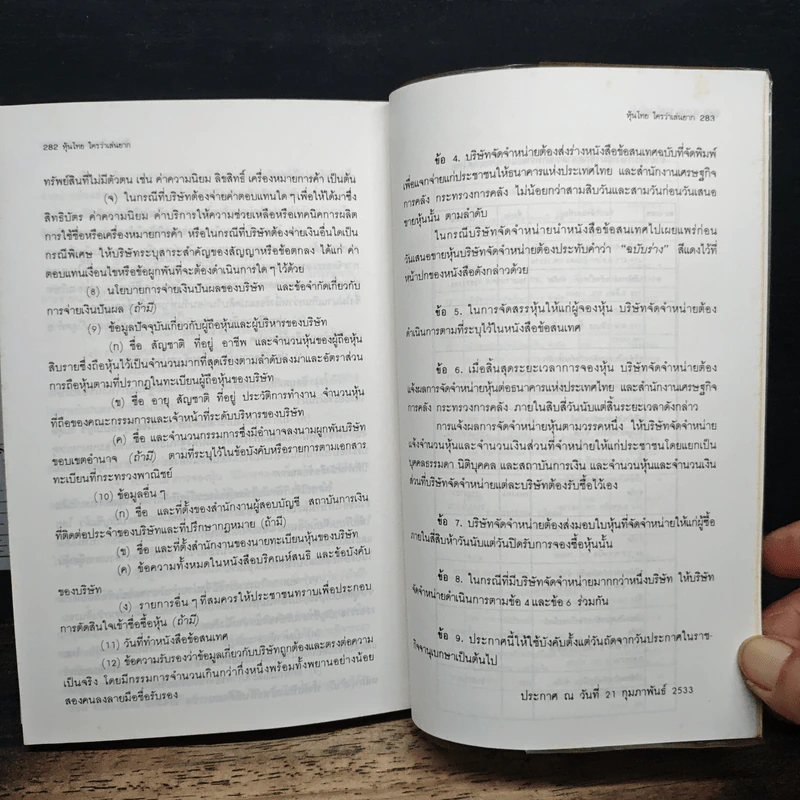 282 หุ้นไทย ใครว่าเล่นยาก
ทรัพย์สินที่ไม่มีตัวตน เช่น ค่าความนิยม ลิขสิทธิ์ เครื่องหมายการค้า เป็นต้น
(จ) ในกรณีที่บริษัทต้องจ่ายค่าตอบแทนใด ๆ เพื่อให้ได้มาซึ่ง
สิทธิบัตร ค่าความนิยม ค่าบริการให้ความช่วยเหลือหรือเทคนิคการผลิต
การใช้ชื่อหรือเครื่องหมายการค้า หรือในกรณีที่บริษัทต้องจ่ายเงินอื่นใดเป็น
กรณีพิเศษ ให้บริษัทระบุสาระสำคัญของสัญญาหรือข้อตกลง ได้แก่ ค่า
ตอบแทนเงื่อนไขหรือข้อผูกพันที่จะต้องดำเนินการใด ๆ ไว้ด้วย
(8) นโยบายการจ่ายเงินปันผลของบริษัท และข้อจำกัดเกี่ยวกับ
การจ่ายเงินปันผล (ถ้ามี)
(9) ข้อมูลปัจจุบันเกี่ยวกับผู้ถือหุ้นและผู้บริหารของบริษัท
(ก) ชื่อ สัญชาติ ที่อยู่ อาชีพ และจำนวนหุ้นของผู้ถือหุ้น
สิบรายซึ่งถือหุ้นไว้เป็นจำนวนมากที่สุดเรียงตามลำดับลงมาและอัตราส่วน
การถือหุ้นตามที่ปรากฏในทะเบียนผู้ถือหุ้นของบริษัท
(ข) ชื่อ อายุ สัญชาติ ที่อยู่ ประวัติการทำงาน จำนวนหุ้น
ที่ถือของคณะกรรมการและเจ้าหน้าที่ระดับบริหารของบริษัท
(ค) ชื่อ และจำนวนกรรมการซึ่งมีอำนาจลงนามผูกพันบริษัท
ขอบเขตอำนาจ (ถ้ามี) ตามที่ระบุไว้ในข้อบังคับหรือรายการตามเอกสาร
ทะเบียนที่กระทรวงพาณิชย์
(10) ข้อมูลอื่น ๆ
(ก) ชื่อ และที่ตั้งของสำนักงานผู้สอบบัญชี สถาบันการเงิน
ที่ติดต่อประจำของบริษัทและที่ปรึกษากฎหมาย (ถ้ามี)
(ข) ชื่อ และที่ตั้งสำนักงานของนายทะเบียนหุ้นของบริษัท
(ค) ข้อความทั้งหมดในหนังสือบริคณห์สนธิ และข้อบังคับ
ของบริษัท
(ง) รายการอื่น ๆ ที่สมควรให้ประชาชนทราบเพื่อประกอบ
การตัดสินใจเข้าชื่อซื้อหุ้น (ถ้ามี)
(11) วันที่ทำหนังสือข้อสนเทศ
(12) ข้อความรับรองว่าข้อมูลเกี่ยวกับบริษัทถูกต้องและตรงต่อความ
เป็นจริง โดยมีกรรมการจำนวนเกินกว่ากึ่งหนึ่งพร้อมทั้งพยานอย่างน้อย
สองคนลงลายมือชื่อรับรอง
หุ้นไทย ใครว่าเล่นยาก 283
ข้อ 4. บริษัทจัดจำหน่ายต้องส่งร่างหนังสือข้อสนเทศฉบับที่จัดพิมพ์
เพื่อแจกจ่ายแก่ประชาชนให้ธนาคารแห่งประเทศไทย และสำนักงานเศรษฐกิจ
การคลัง กระทรวงการคลัง ไม่น้อยกว่าสามสิบวันและสามวันก่อนวันเสนอ
ขายหุ้นนั้น ตามลำดับ
ในกรณีบริษัทจัดจำหน่ายนำหนังสือข้อสนเทศไปเผยแพร่ก่อน
วันเสนอขายหุ้นบริษัทจัดจำหน่ายต้องประทับคำว่า “ฉบับร่าง” สีแดงไว้ที่
หน้าปกของหนังสือดังกล่าวด้วย
ข้อ 5. ในการจัดสรรหุ้นให้แก่ผู้จองหุ้น บริษัทจัดจำหน่ายต้อง
ดำเนินการตามที่ระบุไว้ในหนังสือข้อสนเทศ
ข้อ 6. เมื่อสิ้นสุดระยะเวลาการจองหุ้น บริษัทจัดจำหน่ายต้อง
แจ้งผลการจัดจำหน่ายหุ้นต่อธนาคารแห่งประเทศไทย และสำนักงานเศรษฐกิจ
การคลัง กระทรวงการคลัง ภายในสิบสี่วันนับแต่สิ้นระยะเวลาดังกล่าว
การแจ้งผลการจัดจำหน่ายหุ้นตามวรรคหนึ่ง ให้บริษัทจัดจำหน่าย
แจ้งจำนวนหุ้นและจำนวนเงินส่วนที่จำหน่ายให้แก่ประชาชนโดยแยกเป็น
บุคคลธรรมดา นิติบุคคล และสถาบันการเงิน และจำนวนหุ้นและจำนวนเงิน
ส่วนที่บริษัทจัดจำหน่ายแต่ละบริษัทต้องรับซื้อไว้เอง
ข้อ 7. บริษัทจัดจำหน่ายต้องส่งมอบใบหุ้นที่จัดจำหน่ายให้แก่ผู้ซื้อ
ภายในสี่สิบห้าวันนับแต่วันปิดรับการจองซื้อหุ้นนั้น
ข้อ 8. ในกรณีที่มีบริษัทจัดจำหน่ายมากกว่าหนึ่งบริษัท ให้บริษัท
จัดจำหน่ายดำเนินการตามข้อ 4 และข้อ 6 ร่วมกัน
ข้อ 9. ประกาศนี้ให้ใช้บังคับตั้งแต่วันถัดจากวันประกาศในราช-
กิจจานุเบกษาเป็นต้นไป
ประกาศ ณ วันที่ 21 กุมภาพันธ์ 2533